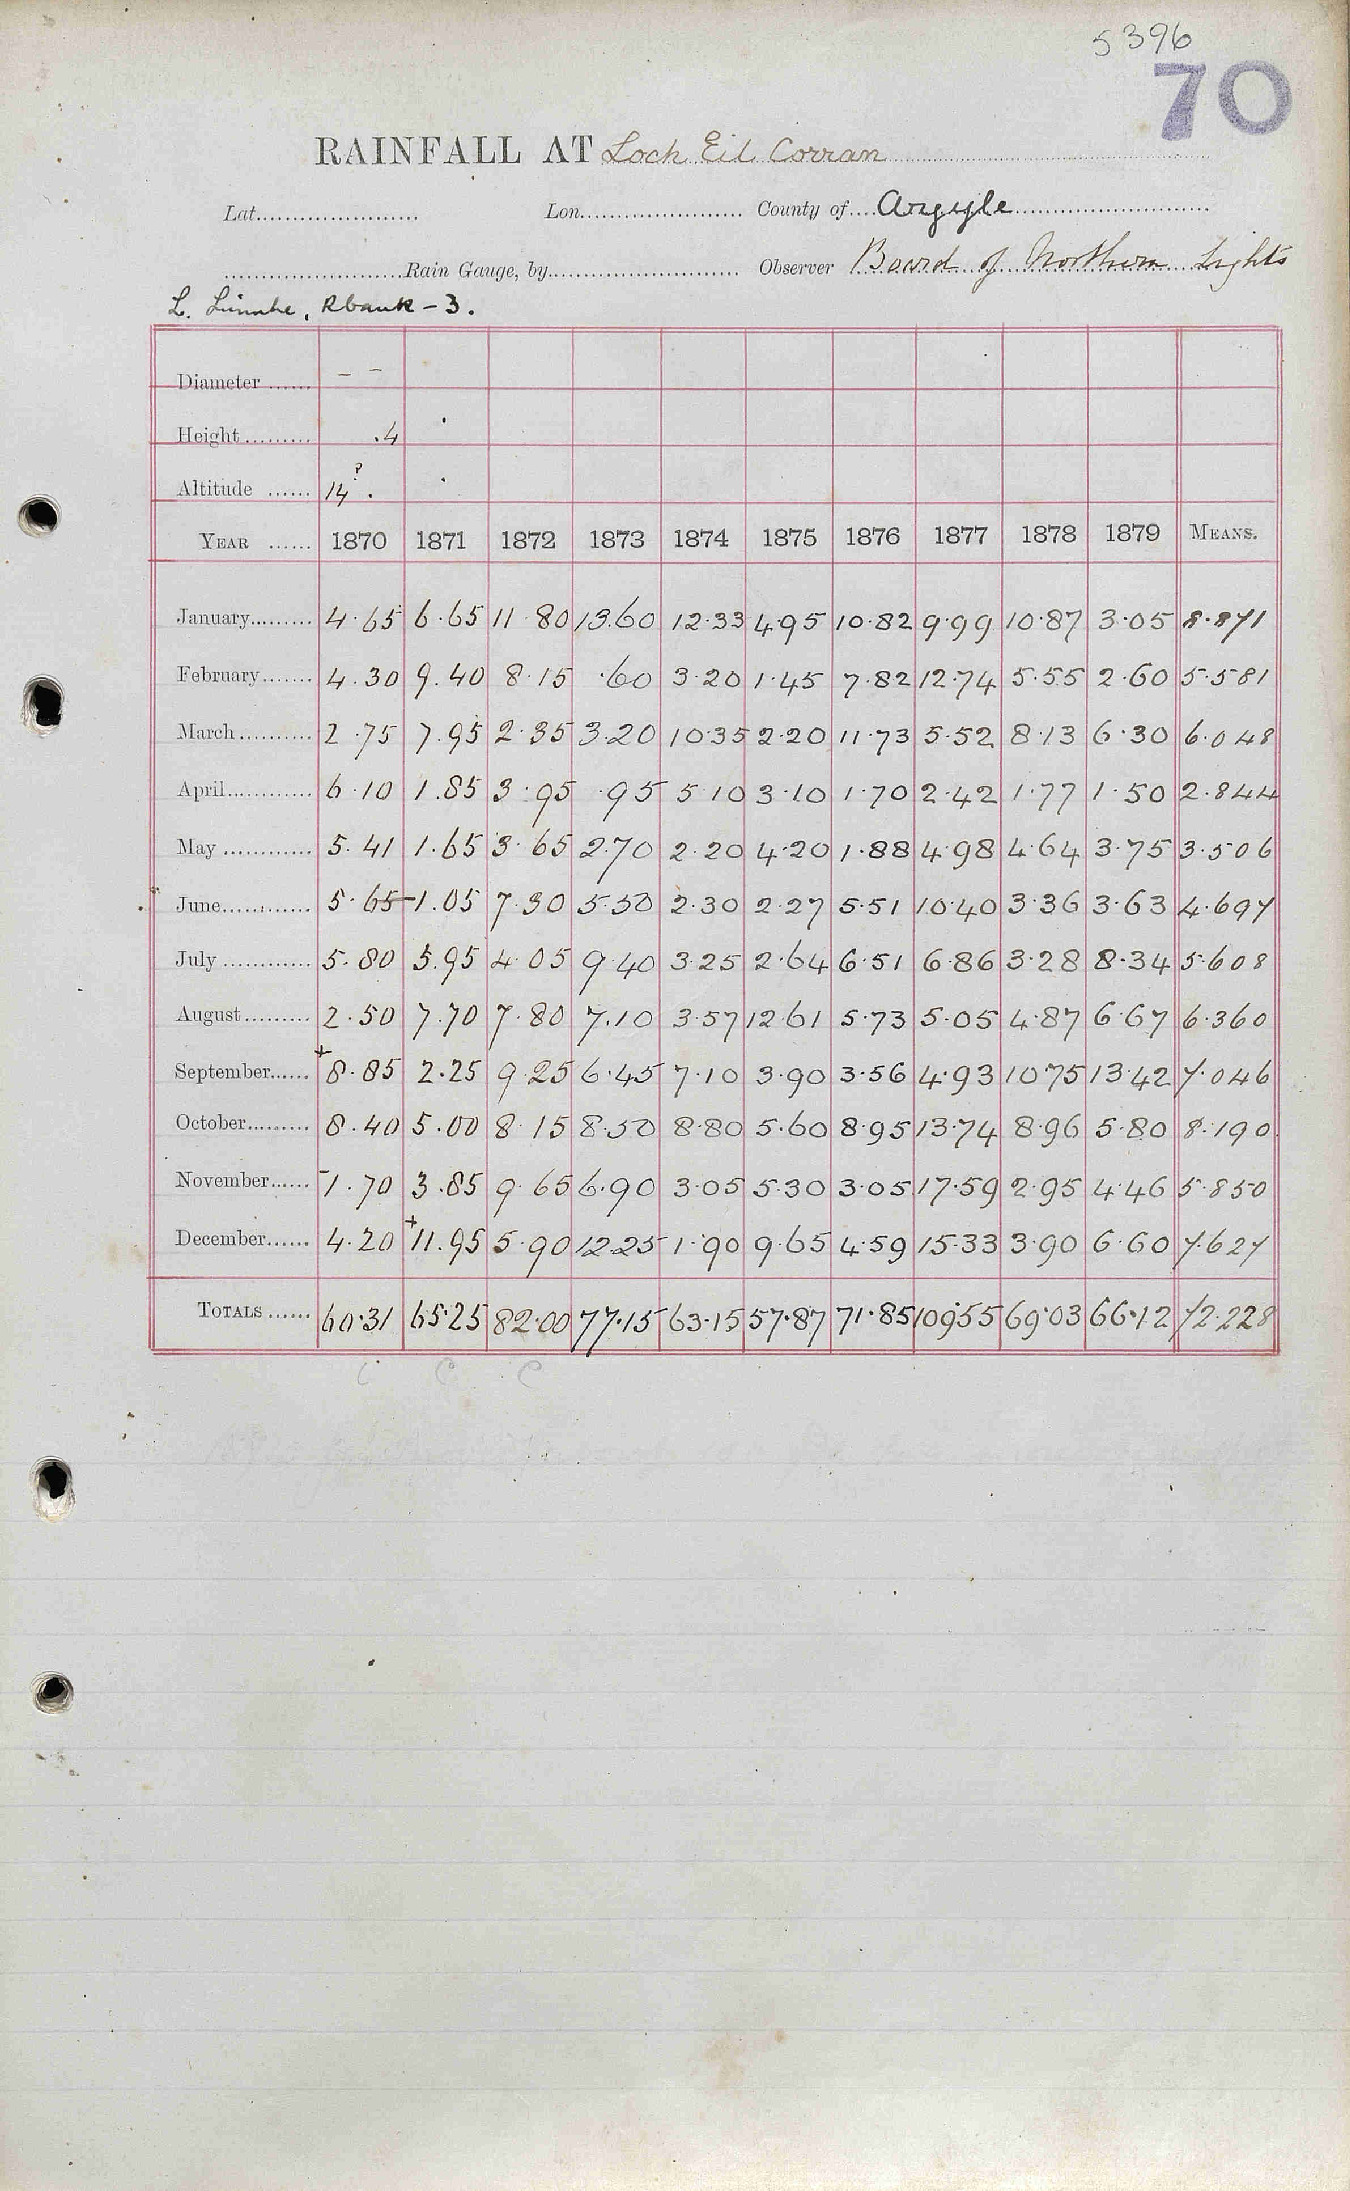 5396
70
RAINFALL AT Loch Eil Corran
Lat. Lon. County of Argyle
Rain Gauge, by Observer Board of Northern Lights
L. Linnhe, Rbank - 3.
Diameter - -
Height .4
Altitude 14 ?
YEAR 1870 1871 1872 1873 1874 1875 1876 1877 1878 1879 MEANS.
January 4.65 6.65 11.80 13.60 12.33 4.95 10.82 9.99 10.87 3.05 8.871
February 4.30 9.40 8.15 .60 3.20 1.45 7.82 12.74 5.55 2.60 5.581
March 2.75 7.95 2.35 3.20 10.35 2.20 11.73 5.52 8.13 6.30 6.048
April 6.10 1.85 3.95 .95 5.10 3.10 1.70 2.42 1.77 1.50 2.844
May 5.41 1.65 3.65 2.70 2.20 4.20 1.88 4.98 4.64 3.75 3.506
June 5.65 1.05 7.30 5.50 2.30 2.27 5.51 10.40 3.36 3.63 4.697
July 5.80 5.95 4.05 9.40 3.25 2.64 6.51 6.86 3.28 8.34 5.608
August 2.50 7.70 7.80 7.10 3.57 12.61 5.73 5.05 4.87 6.67 6.360
September +8.85 2.25 9.25 6.45 7.10 3.90 3.56 4.93 10.75 13.42 7.046
October 8.40 5.00 8.15 8.50 8.80 5.60 8.95 13.74 8.96 5.80 8.190
November -1.70 3.85 9.65 6.90 3.05 5.30 3.05 17.59 2.95 4.46 5.850
December 4.20 +11.95 5.90 12.25 1.90 9.65 4.59 15.33 3.90 6.60 7.627
TOTALS 60.31 65.25 82.00 77.15 63.15 57.87 71.85 109.55 69.03 66.12 72.228
C C C